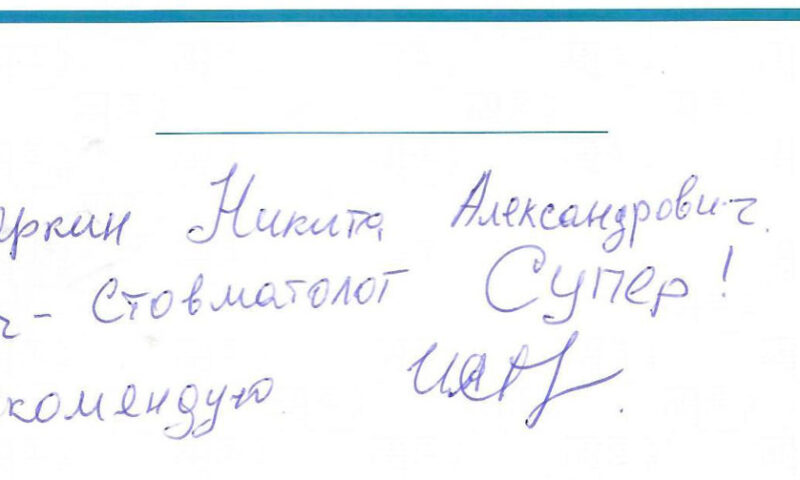 еркин Никита Александрович.
г - Стовматолог Супер!
комендую